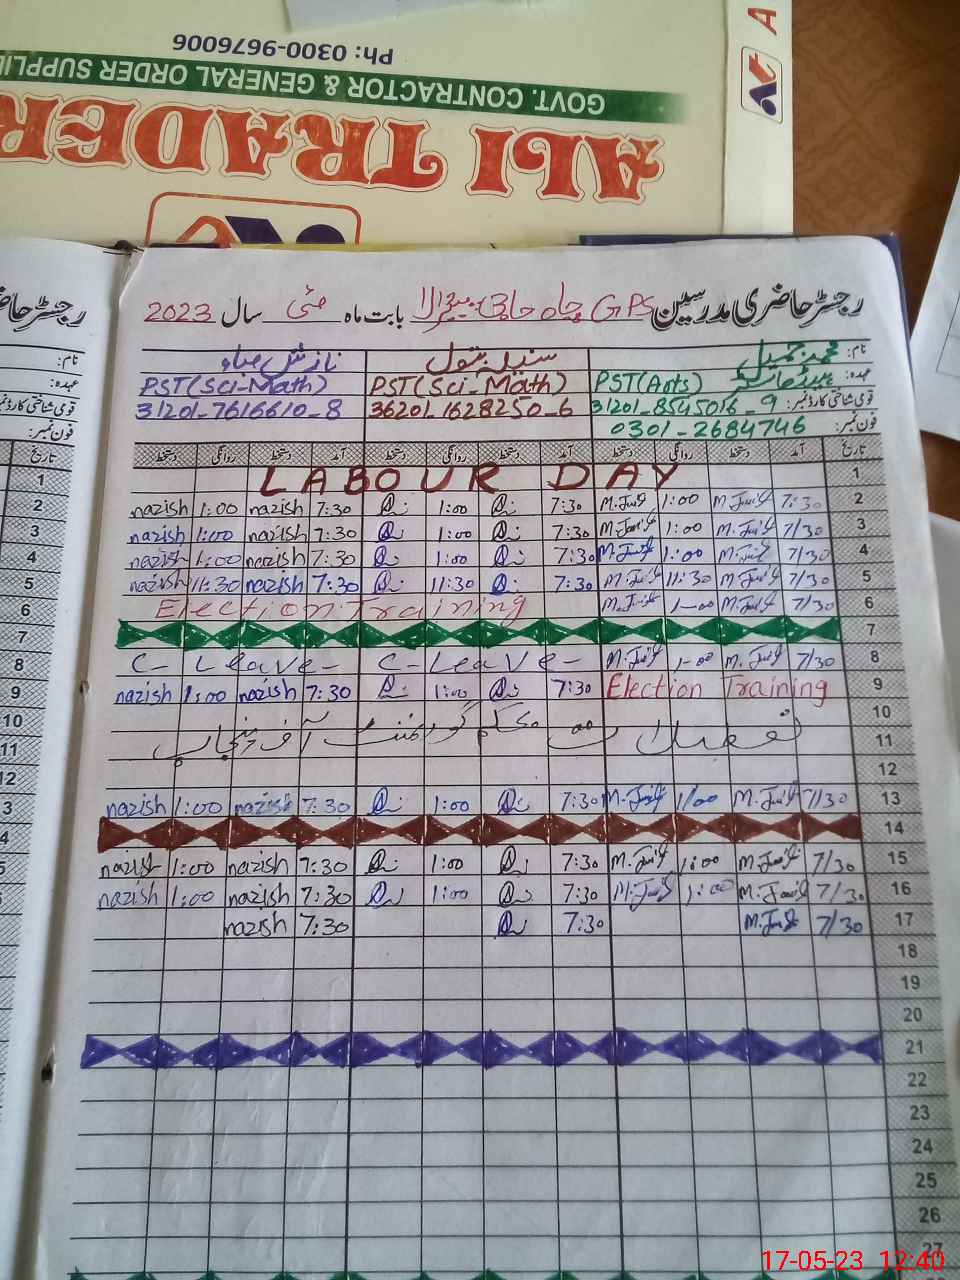 Ph: 0300-9676006
GOVT. CONTRACTOR & GENERAL ORDER SUPPLI
ALI TRADER
A
رجسٹر حاضری مدرسین GPS چاہ حاجی بابت ماہ مئی سال 2023
نام: محمد جمیل سنیلہ بتول نازش
عہدہ: PST(Arts) PST(Sci-Math) PST(Sci-Math)
قومی شناختی کارڈ نمبر: 31201-8545016-9 36201-1628250-6 31201-7616610-8
فون نمبر: 0301-2684746
تاریخ آمد دستخط روانگی دستخط آمد دستخط روانگی دستخط آمد دستخط روانگی دستخط
LABOUR DAY 1
nazish 1:00 nazish 7:30 1:00 7:30 M.Jamil 1:00 M.Jamil 7:30 2
nazish 1:00 nazish 7:30 1:00 7:30 M.Jamil 1:00 M.Jamil 7/30 3
nazish 1:00 nazish 7:30 1:00 7:30 M.Jamil 1:00 M.Jamil 7/30 4
nazish 11:30 nazish 7:30 11:30 7:30 M.Jamil 11:30 M.Jamil 7/30 5
Election Training M.Jamil 1-00 M.Jamil 7/30 6
7
C-Leave- C-Leave- M.Jamil 1-00 M.Jamil 7/30 8
nazish 1:00 nazish 7:30 1:00 7:30 Election Training 9
10
تعطیلات بحکم گورنمنٹ آف پنجاب 11
12
nazish 1:00 nazish 7:30 1:00 7:30 M.Jamil 1/00 M.Jamil 7/30 13
14
nazish 1:00 nazish 7:30 1:00 7:30 M.Jamil 1:00 M.Jamil 7/30 15
nazish 1:00 nazish 7:30 1:00 7:30 M.Jamil 1:00 M.Jamil 7/30 16
nazish 7:30 7:30 M.Jamil 7/30 17
18
19
20
21
22
23
24
25
26
27
17-05-23 12:40